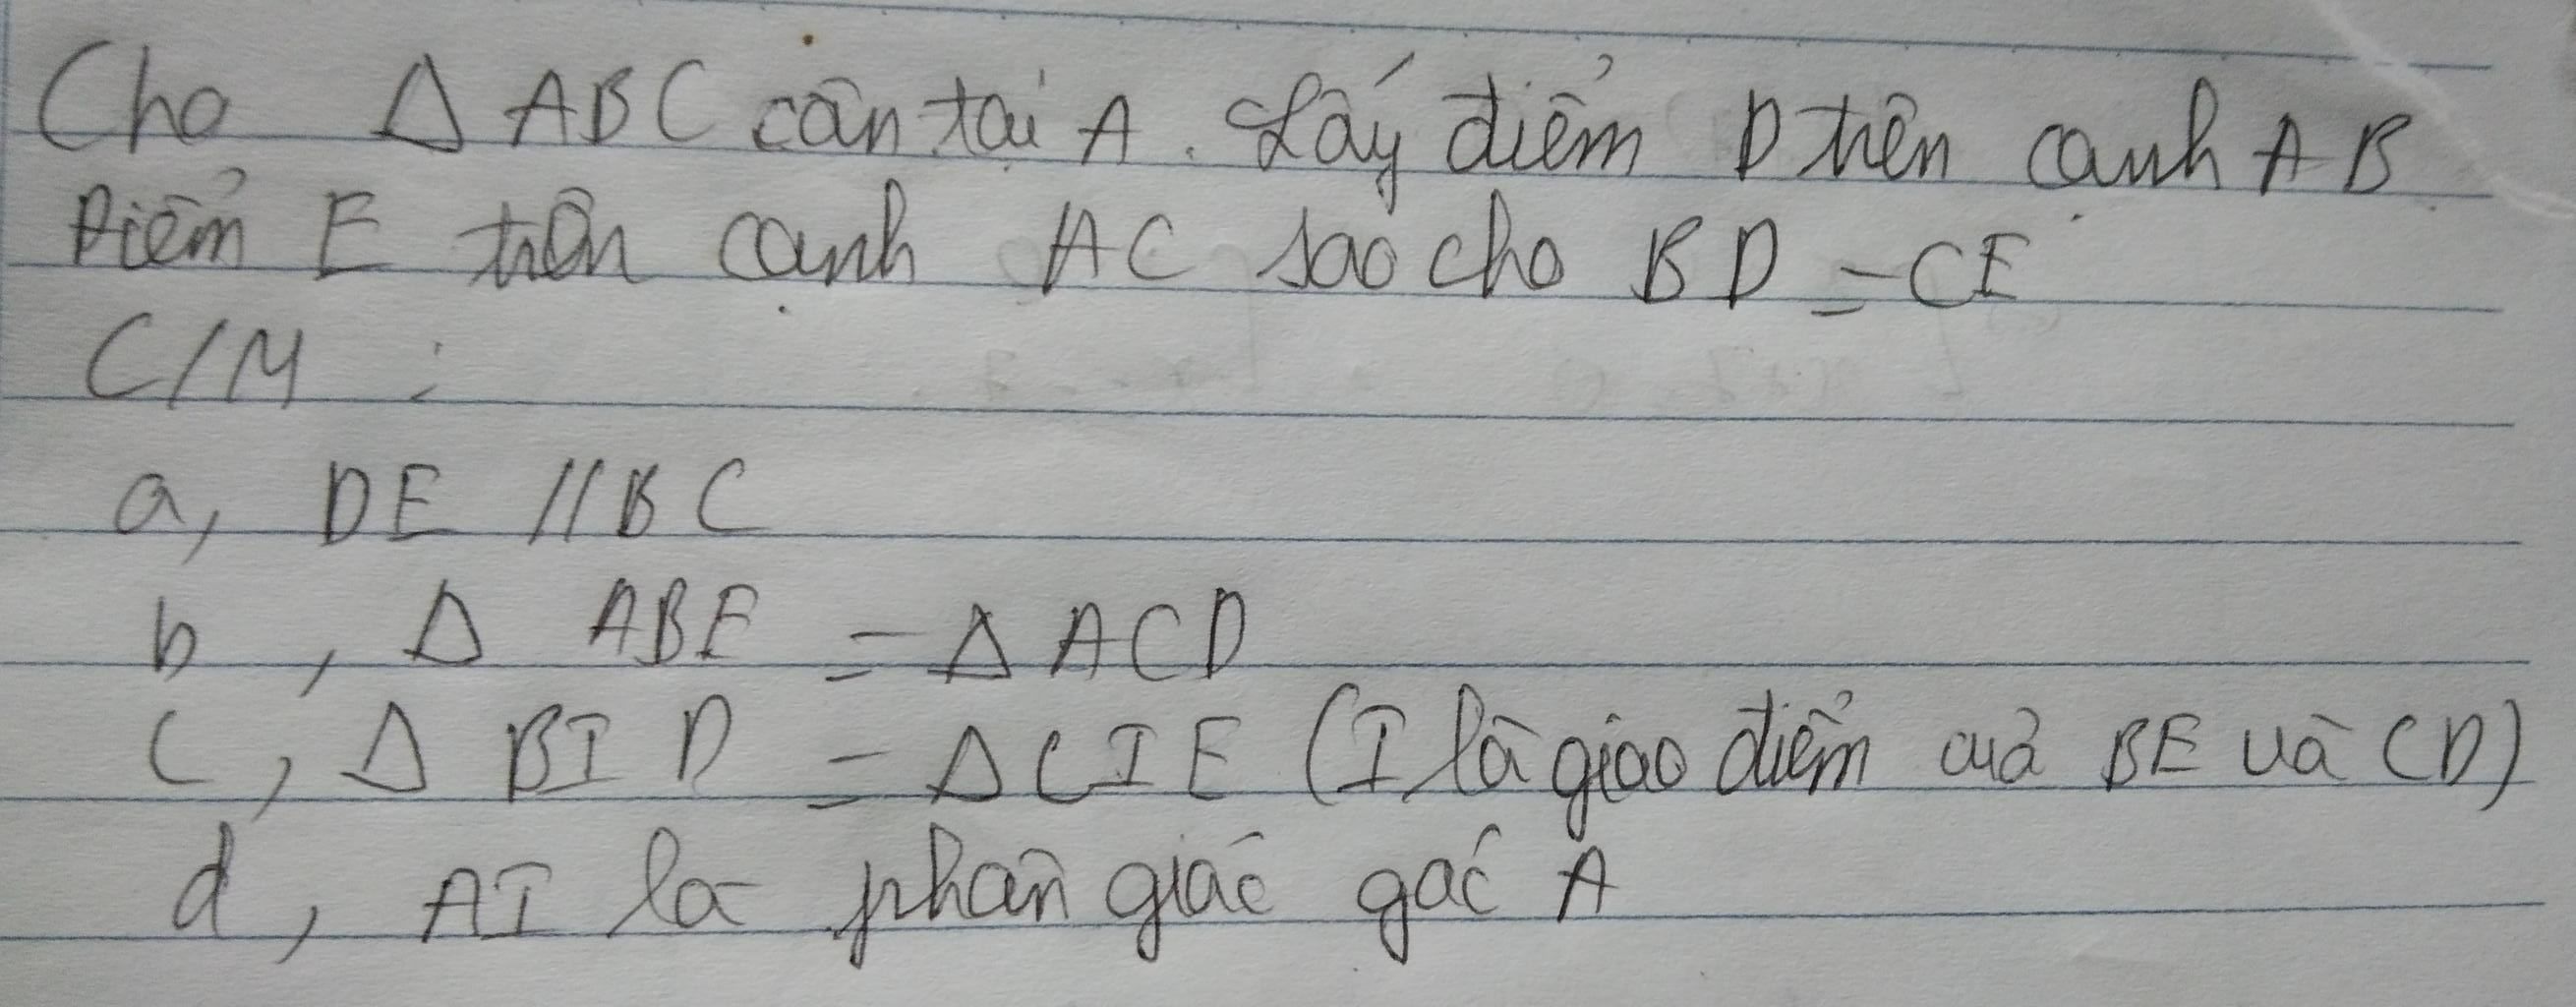 Cho Δ ABC cân tại A. Lấy điểm D trên cạnh AB
Điểm E trên cạnh AC sao cho BD = CE
C/M :
a, DE // BC
b, Δ ABE = Δ ACD
c, Δ BID = Δ CIE (I là giao điểm của BE và CD)
d, AI là phân giác góc A